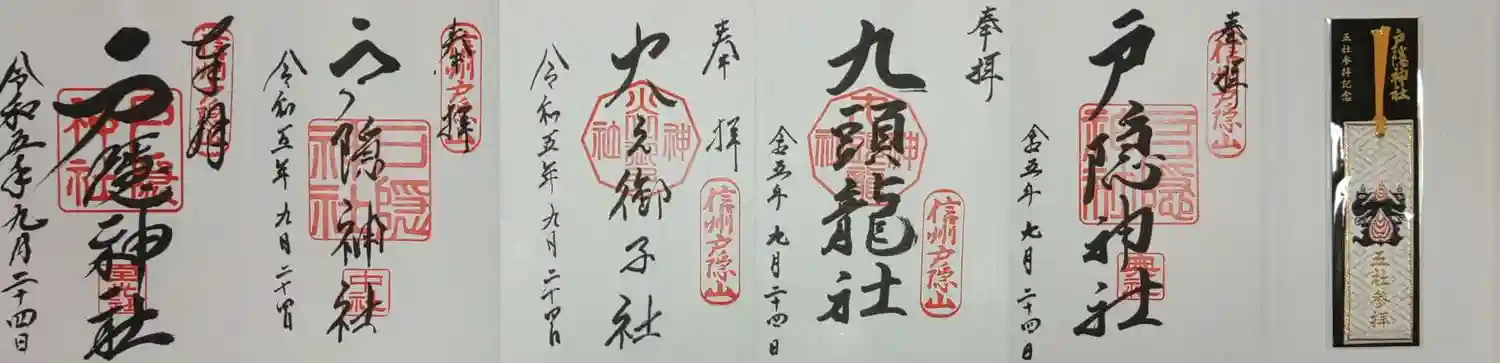 奉拝
信州戸隠山
戸隠神社
戸隠神社
宝光社
令和五年九月二十四日
奉拝
信州戸隠山
戸隠神社
戸隠神社
中社
令和五年九月二十四日
奉拝
信州戸隠山
火之御子社
令和五年九月二十四日
奉拝
信州戸隠山
九頭龍社
令和五年九月二十四日
奉拝
信州戸隠山
戸隠神社
戸隠神社
奥社
令和五年九月二十四日
戸隠神社
五社参拝記念
五社参拝